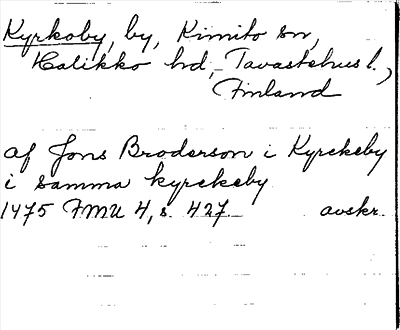 Kyrkoby, by, Kimito sn,
Halikko hd, Tavastehus l.,
Finland
af Jons Broderson i Kyrckeby
i samma kyrckeby
1475 FMU 4, s. 427 avskr.